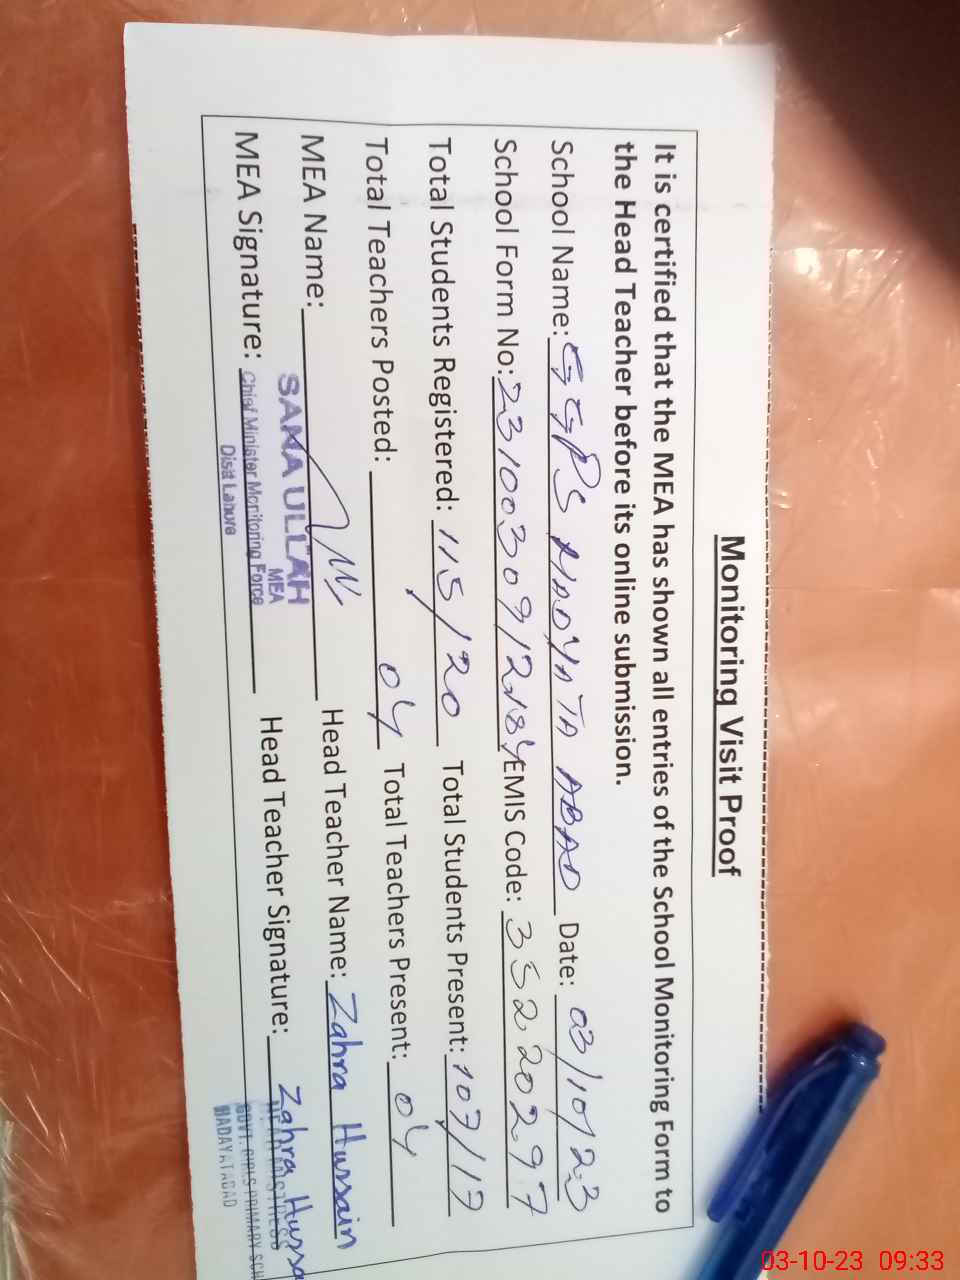 Monitoring Visit Proof
It is certified that the MEA has shown all entries of the School Monitoring Form to
the Head Teacher before its online submission.
School Name: GGPS HADYATA ABAD Date: 03/10/23
School Form No: EMIS Code: 35220297
Total Students Registered: 115/20 Total Students Present: 107/17
Total Teachers Posted: 04 Total Teachers Present: 04
MEA Name: Head Teacher Name: Zahra Hussain
SANA ULLAH
MEA
MEA Signature: Chief Minister Monitoring Force Head Teacher Signature: Zahra Hussa
Distt Lahore
HEADMISTRESS
GOVT. GIRLS PRIMARY SCH
HADAYATABAD
03-10-23 09:33